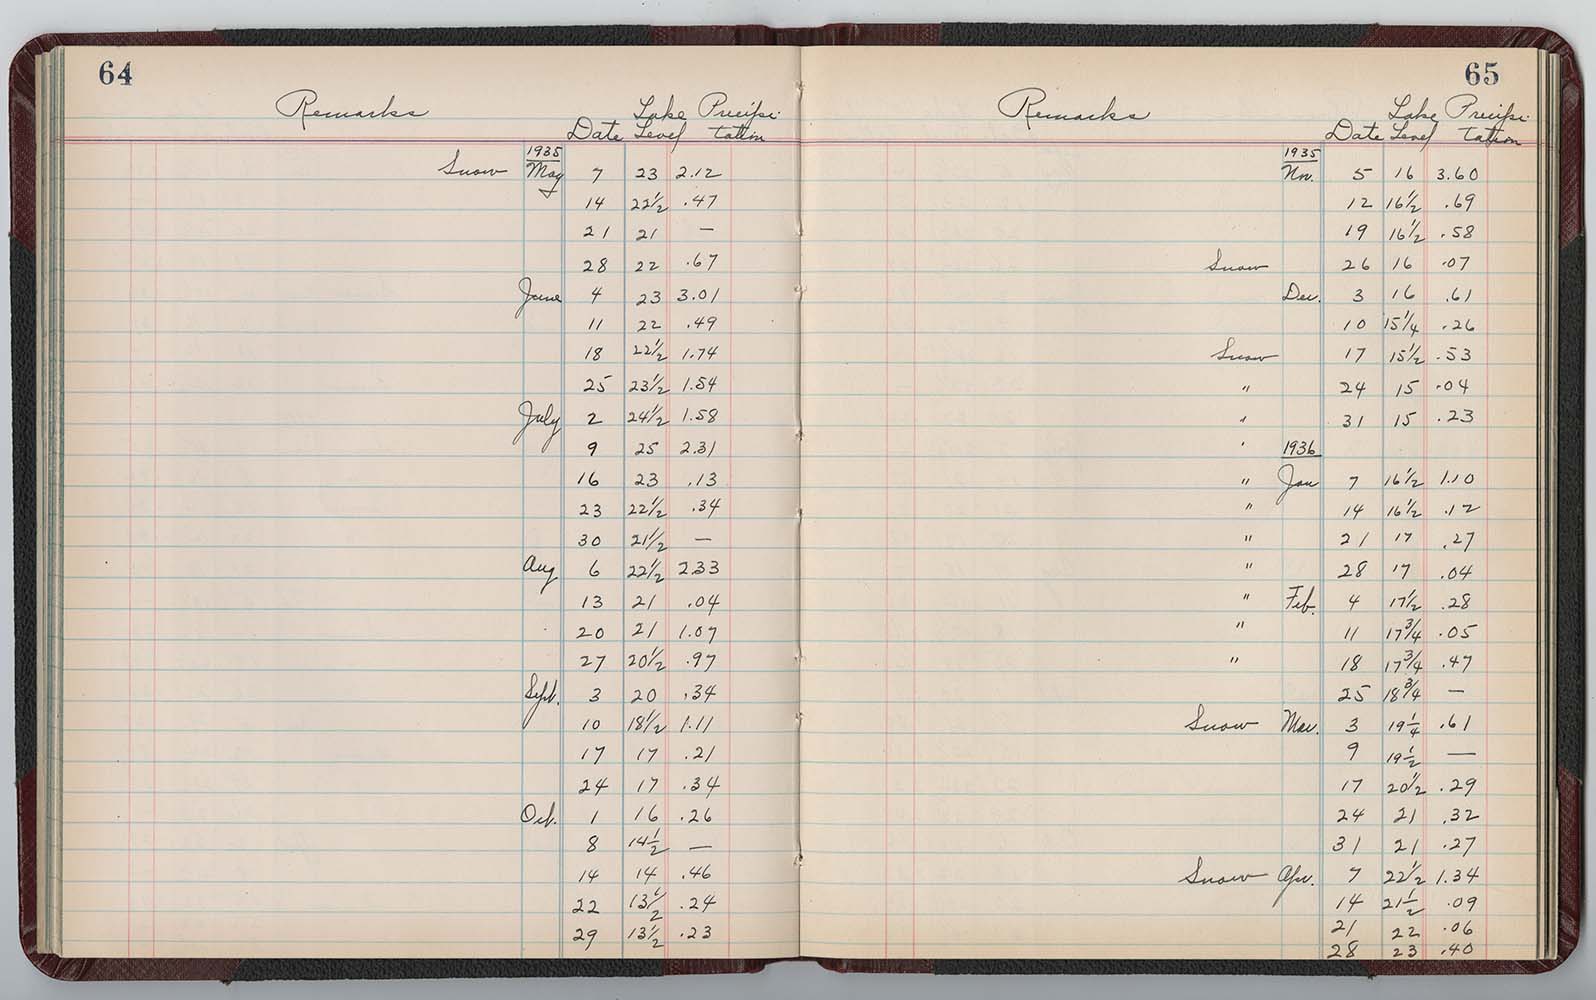 64
Remarks Date Lake Level Precipitation
1935
Snow May 7 23 2.12
14 22 1/2 .47
21 21 —
28 22 .67
June 4 23 3.01
11 22 .49
18 22 1/2 1.74
25 23 1/2 1.54
July 2 24 1/2 1.58
9 25 2.31
16 23 .13
23 22 1/2 .34
30 21 1/2 —
Aug 6 22 1/2 2.33
13 21 .04
20 21 1.07
27 20 1/2 .97
Sept. 3 20 .34
10 18 1/2 1.11
17 17 .21
24 17 .34
Oct. 1 16 .26
8 14 1/2 —
14 14 .46
22 13 1/2 .24
29 13 1/2 .23
65
Remarks Date Lake Level Precipitation
1935
Nov. 5 16 3.60
12 16 1/2 .69
19 16 1/2 .58
Snow 26 16 .07
Dec. 3 16 .61
10 15 1/4 .26
Snow 17 15 1/2 .53
" 24 15 .04
" 31 15 .23
' 1936
" Jan 7 16 1/2 1.10
" 14 16 1/2 .12
" 21 17 .27
" 28 17 .04
" Feb. 4 17 1/2 .28
" 11 17 3/4 .05
" 18 17 3/4 .47
25 18 3/4 —
Snow Mar. 3 19 1/4 .61
9 19 1/2 —
17 20 1/2 .29
24 21 .32
31 21 .27
Snow Apr. 7 22 1/2 1.34
14 21 1/2 .09
21 22 .06
28 23 .40